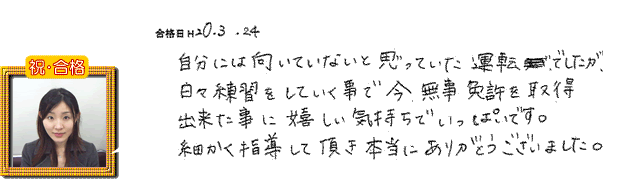 合格日 H20.3.24
祝・合格
自分には向いていないと思っていた運転でしたが、
日々練習をしていく事で今、無事免許を取得
出来た事に嬉しい気持ちでいっぱいです。
細かく指導して頂き本当にありがとうございました。